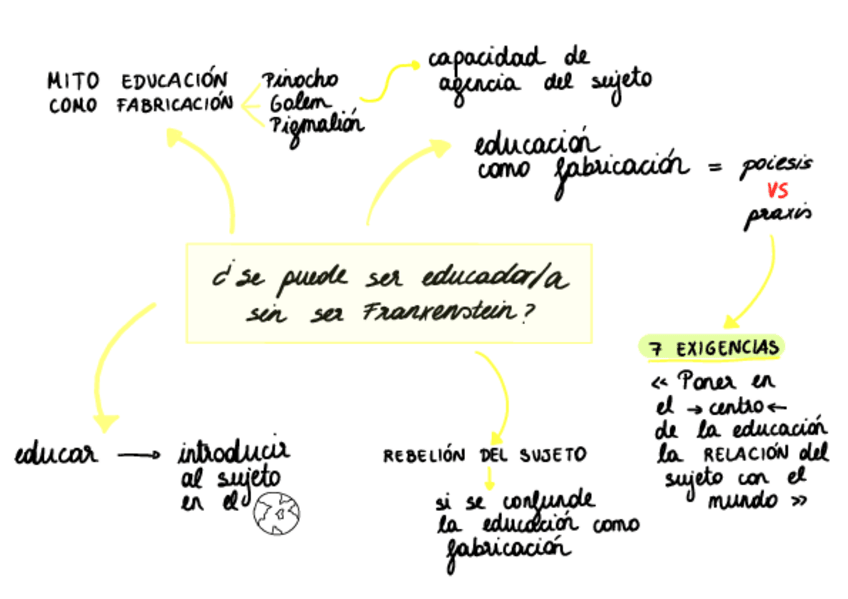 MITO EDUCACIÓN
COMO FABRICACIÓN
Pinocho
Golem
Pigmalión
capacidad de
agencia del sujeto
educación
como fabricación = poiesis
VS
praxis
¿se puede ser educador/a
sin ser Frankenstein?
7 EXIGENCIAS
<< Poner en
el → centro ←
de la educación
la RELACIÓN del
sujeto con el
mundo >>
educar → introducir
al sujeto
en el
REBELIÓN DEL SUJETO
si se confunde
la educación como
fabricación